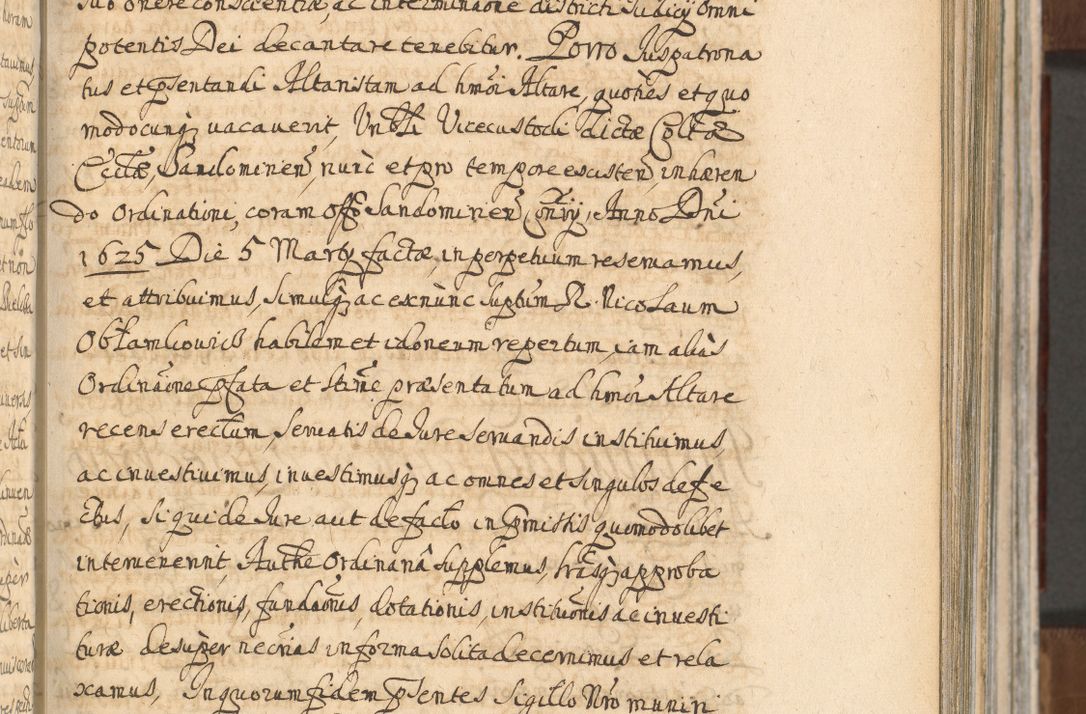 sub onere conscientiæ, ac interminaōne districti Judicij Omni
potentis Dei decantare tenebitur. Porro Juspatrona
tus et pſentandi Altaristam ad hmōi Altare, quoties et quo
modocunqȝ vacaverit, Vnbli Vicecustodi dictæ Colłtæ
Eccłæ, Sandomirien̄, nunc et pro tempore existen̄, inhæren
do Ordinationi, coram offo Sandomirien̄, Anno Dn̄i
1625 Die 5 Martij factæ, in perpetuum reservamus,
et attribuimus, simulqȝ ac exnunc suptum R. Nicolaum
Obłamkovicz habilem et idoneum repertum, iam aliàs
Ordinaōne pfata et præsentatum ad hmōi Altare
recens erectum, servatis de Jure servandis instituimus,
ac investivimus, investimusqȝ ac omnes et singulos defe
ctus, si qui de Jure aut de facto in pmissis quomodolibet
intervenerint, Authe Ordinariâ supplemus, lrasqȝ approba
tionis, erectionis, fundaōnis, dotationis, instituōnis ac investi
turæ desuper necrias in forma solita decernimus et rela
xamus, In quorum fidem pſentes Sigillo Nro muniri